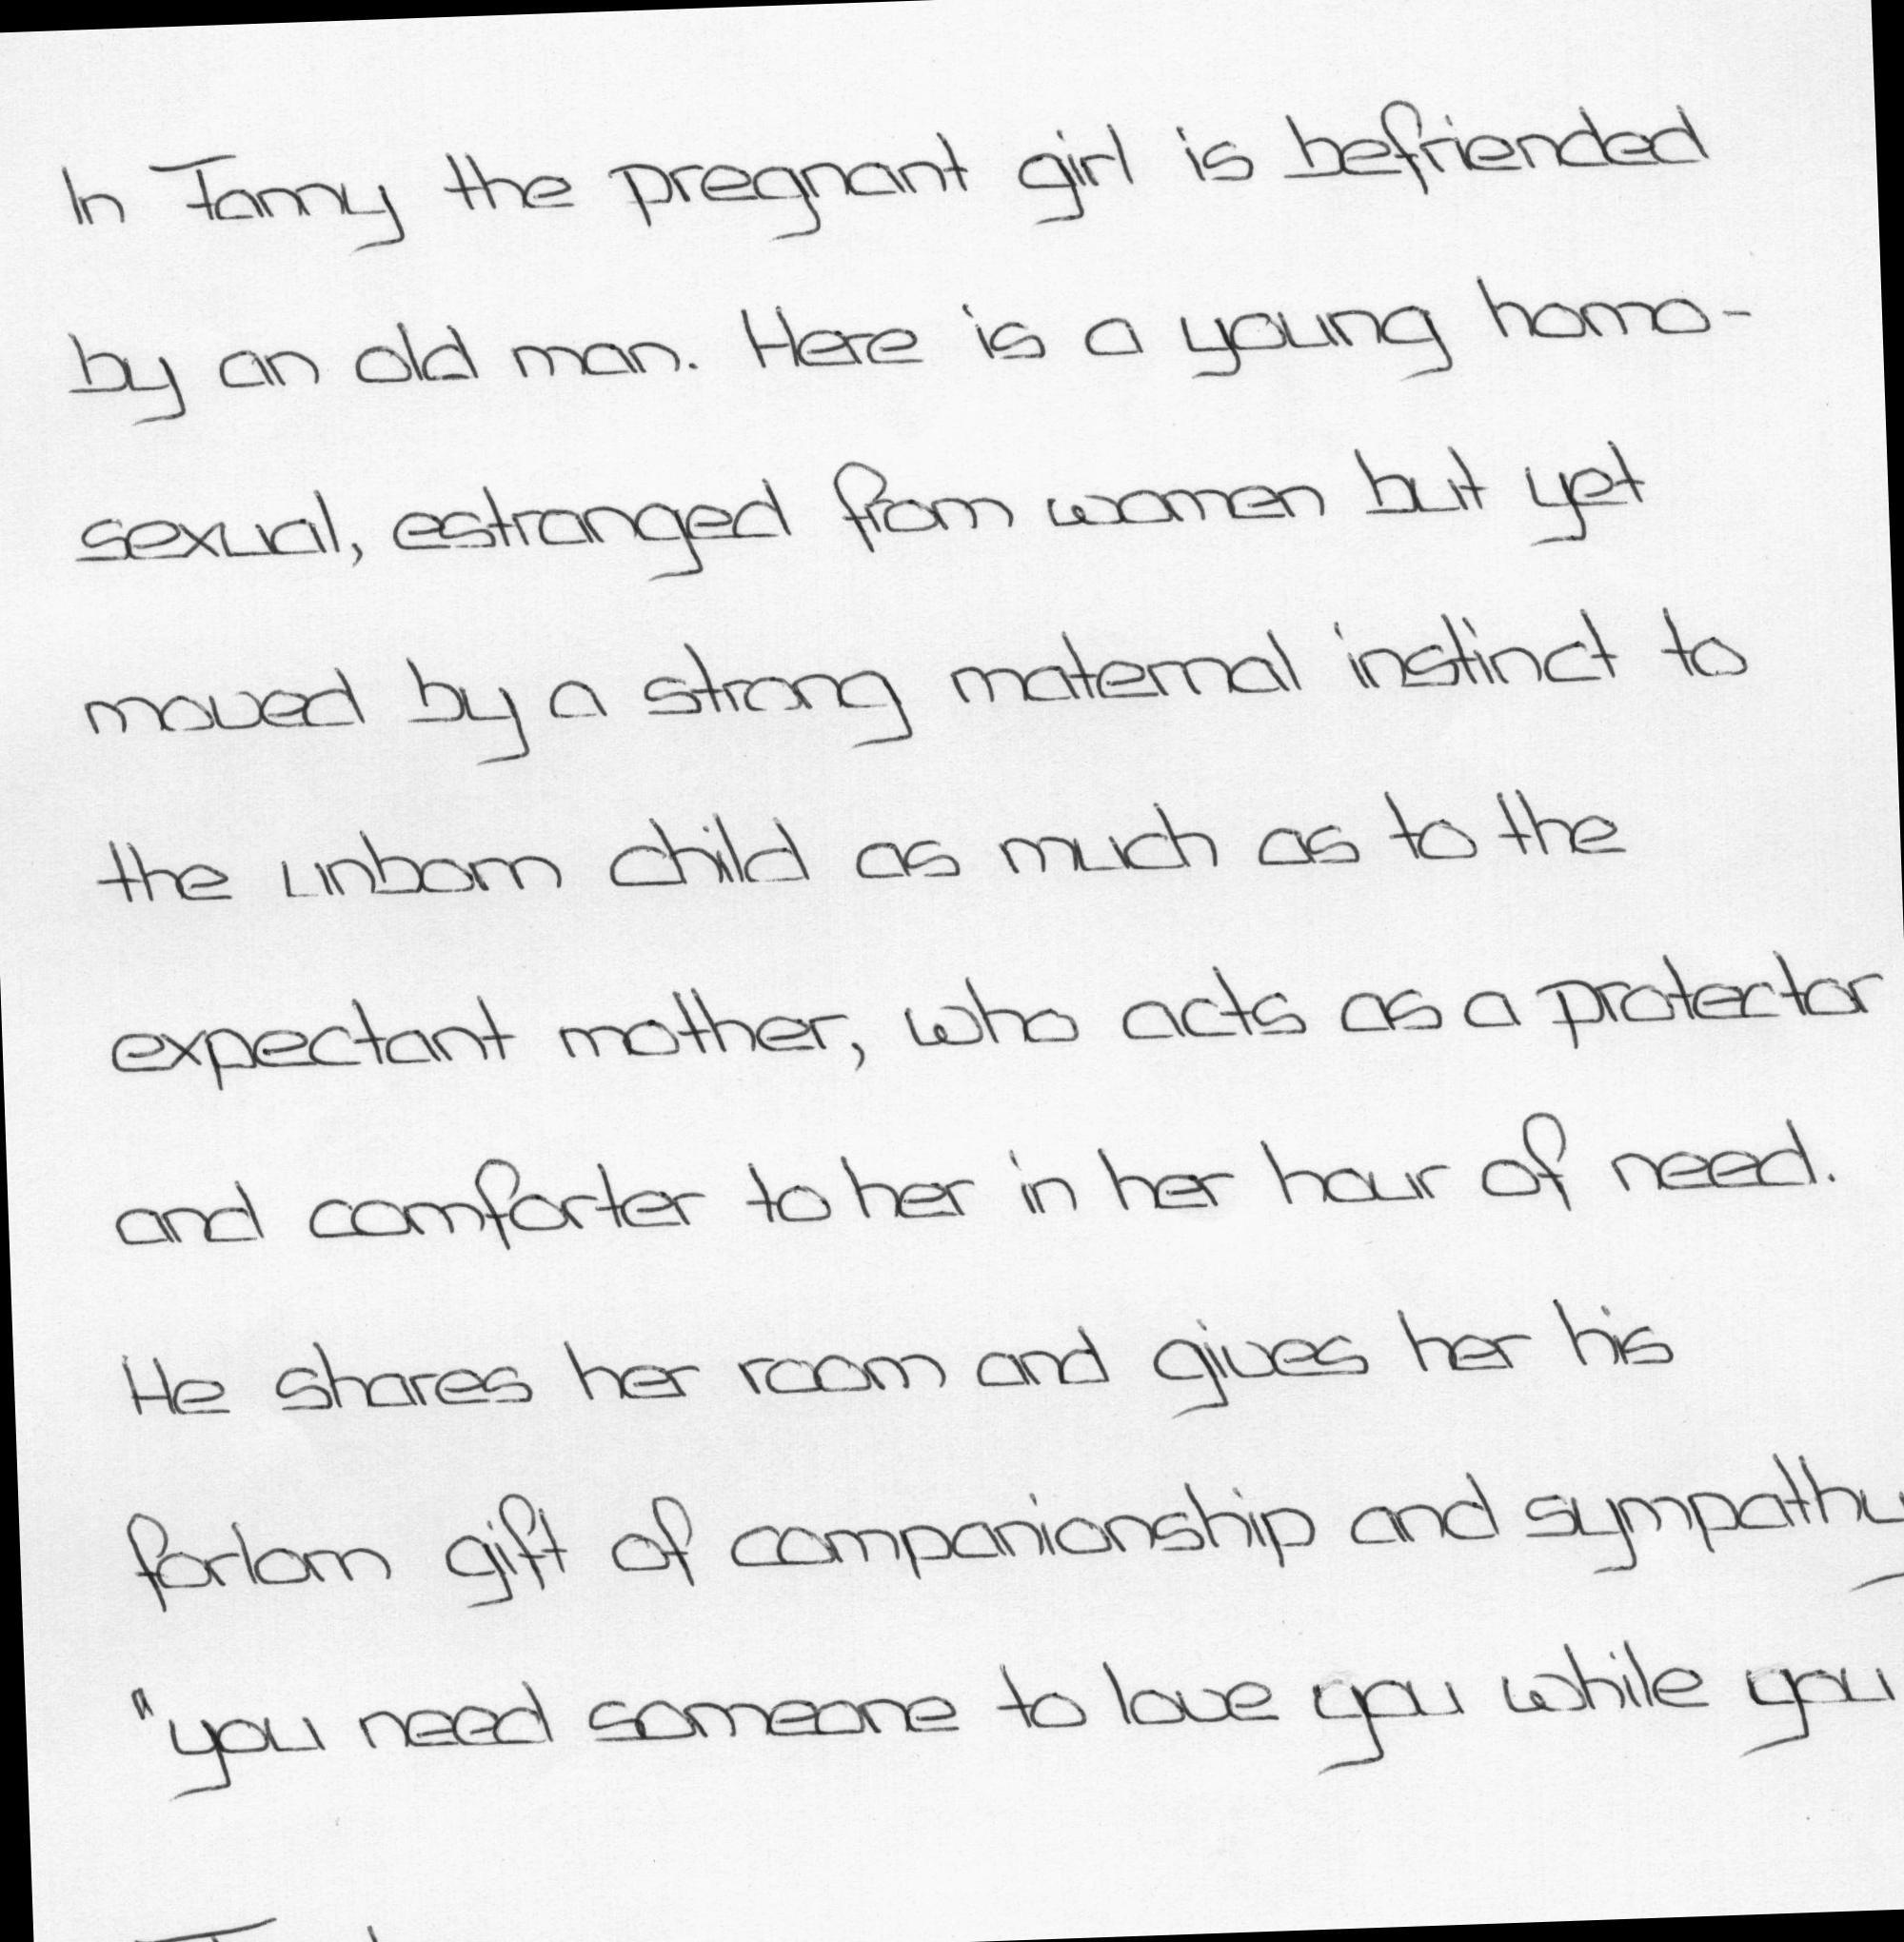 In Fanny the pregnant girl is befriended
by an old man. Here is a young homo-
sexual, estranged from women but yet
moved by a strong maternal instinct to
the unborn child as much as to the
expectant mother, who acts as a protector
and comforter to her in her hour of need.
He shares her room and gives her his
forlorn gift of companionship and sympathy
"you need someone to love you while you